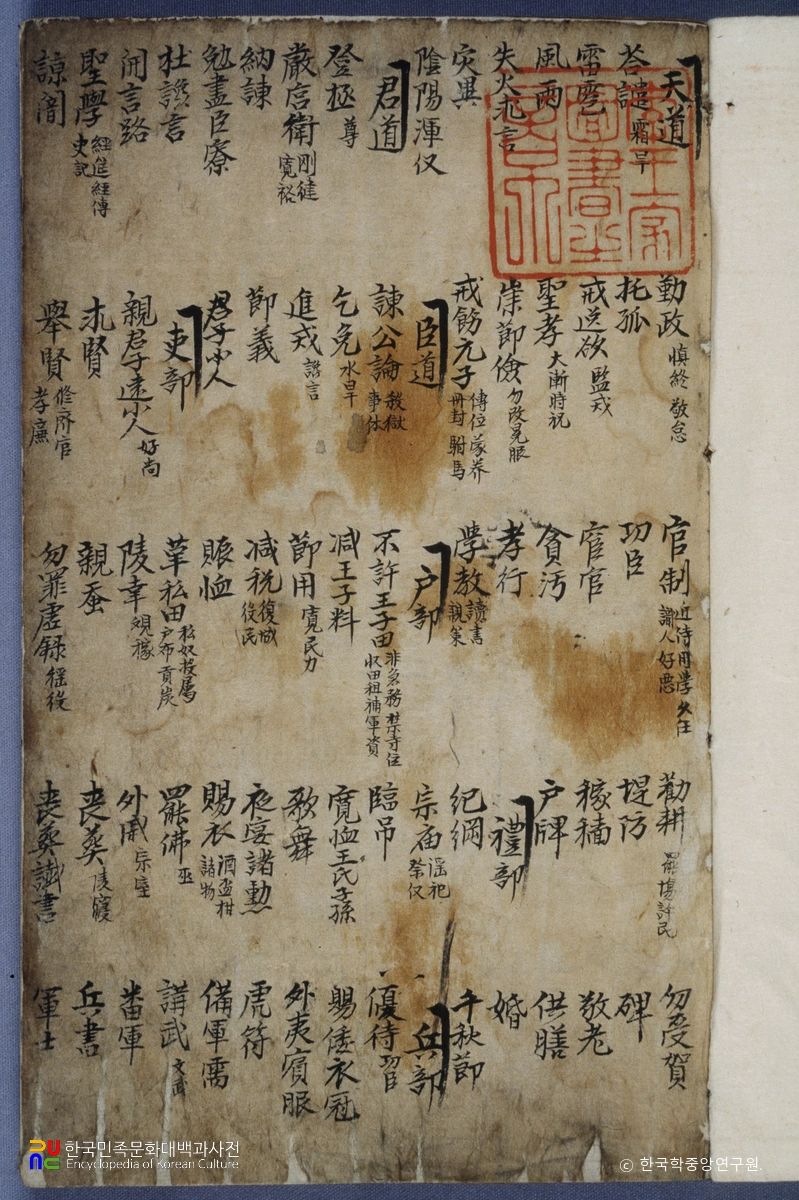 天道
荅譴 霜旱
風雨
失火訛言
灾異
陰陽渾仪
君道
登極 尊
嚴宿衛 剛健 寬裕
納諫
勉盡臣寮
杜讒言
開言路
聖學 經筵 經傳 史記
諒闇
勤政 慎終 敬怠
托孤
戒逆欲
聖孝 大漸時祝
崇節儉 勿改冕服
戒飭元子 傳位 蒙养 冊封 駙馬
臣道
諫 公論
乞免 水旱
進戎 謠言
節義
君子小人
吏部
親君子遠小人 好尚
求賢
舉賢 孝廉
官制 近侍 用學 久任 識人 好惡
功臣
宦官
貪汚
孝行
學教 讀書 親策
户部
不許王子田 非急務禁寺位 収田租補軍資
减王子料
節用 寛民力
减税 復城 役民
賑恤
革私田 私奴投属 户布貢炭
陵幸 观稼
親蚕
勿罪虛録 徭役
勸耕 罷場許民
堤防
稼穡
户牌
禮部
紀綱
宗庙 祭仪
臨吊
寛恤王氏子孫
歌舞
夜宴諸勳
賜衣 酒盃柑 諸物
罷佛 巫
外戚 宗室
喪葬 陵寢
喪葬讖書
勿受賀
碑
敬老
供膳
婚
千秋節
兵部
優待功臣
賜倭衣冠
外夷賓服
虎符
備軍需
講武 文武
番軍
兵書
軍士
한국민족문화대백과사전
Encyclopedia of Korean Culture
© 한국학중앙연구원